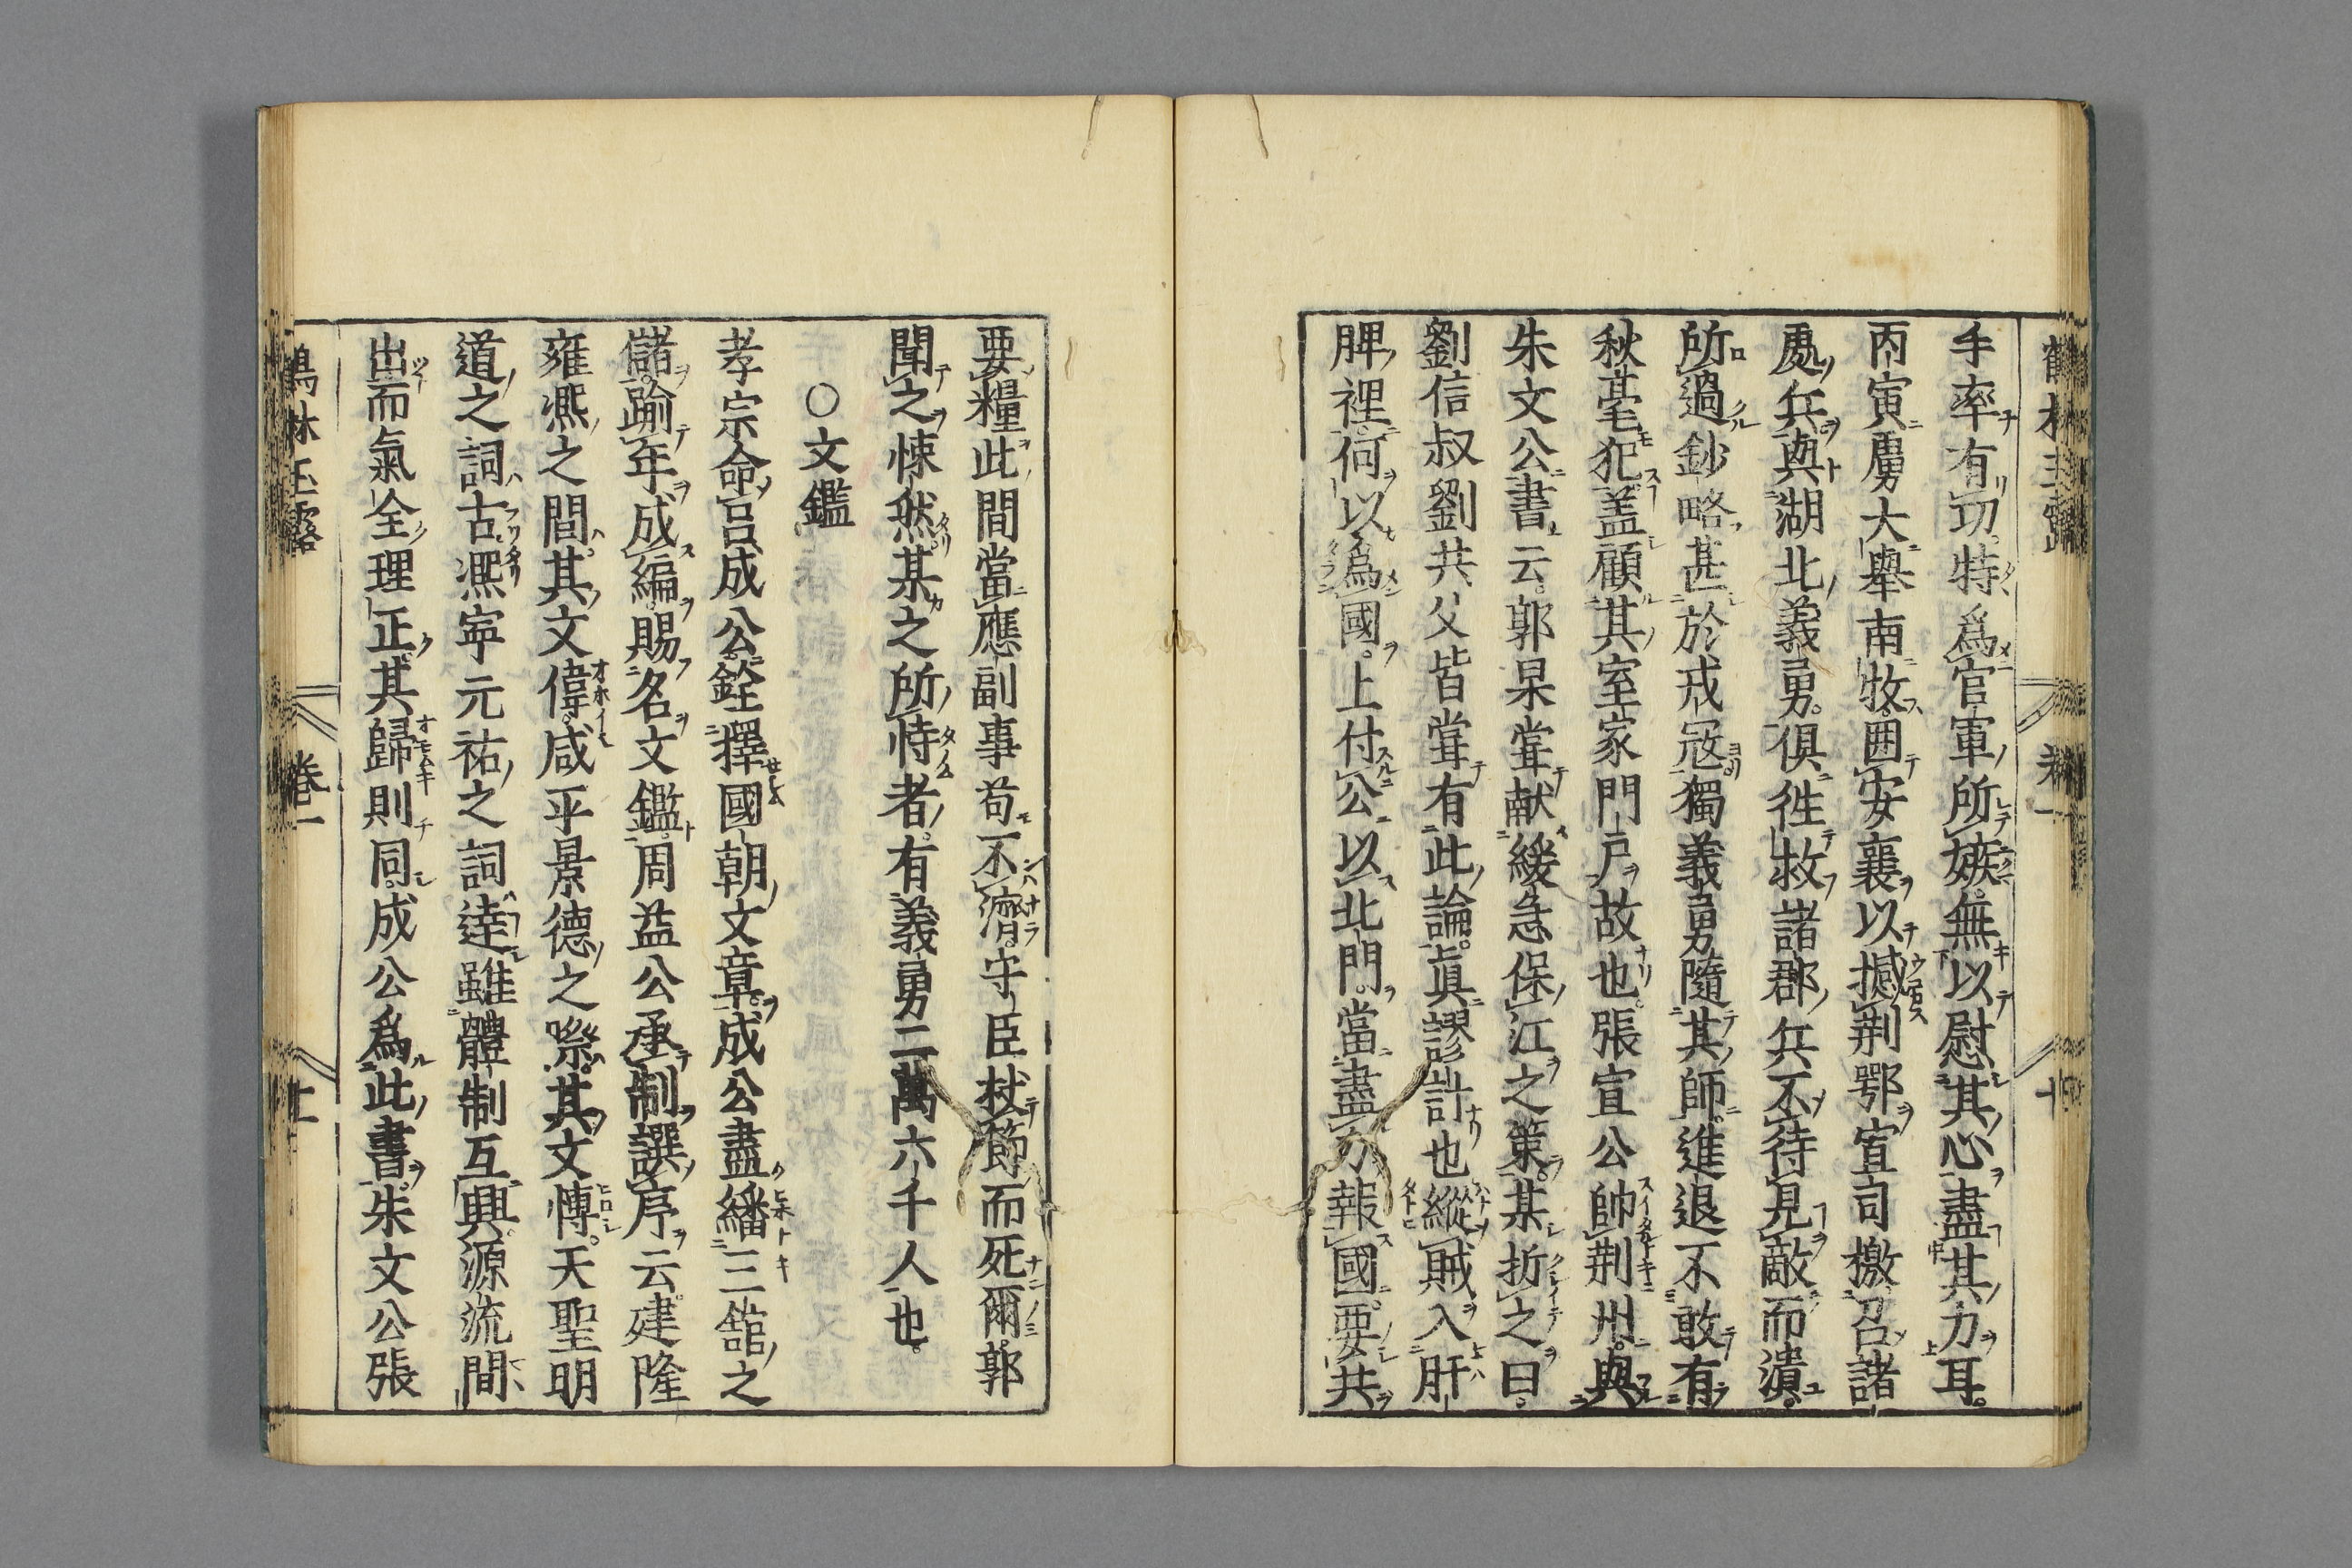 手率有功特爲官軍所嫉無以慰其心盡其力耳
丙寅虜大擧南牧囲安襄以撼荆鄂宣司檄召諸
處兵與湖北義勇倶徃救諸郡兵不待見敵而潰
所過鈔略甚於戎冦獨義勇隨其師進退不敢有
秋毫犯盖顧其室家門戸故也張宣公帥荆州與
朱文公書云郭杲甞献緩急保江之策某折之曰
劉信叔劉共父皆甞有此論眞謬計也縱賊入肝
脾裡何以爲國上付公以北門當盡力報國要共
要糧此間當應副事苟不濟守臣杖節而死爾郭
聞之悚然某之所恃者有義勇二萬六千人也
○文鑑
孝宗命呂成公銓擇國朝文章成公盡繙三舘之
儲踰年成編賜名文鑑周益公承制譔序云建隆
雍凞之間其文偉咸平景德之際其文愽天聖明
道之詞古凞寧元祐之詞達雖體制互興源流間
出而氣全理正其歸則同成公爲此書朱文公張
鶴林玉露 卷一